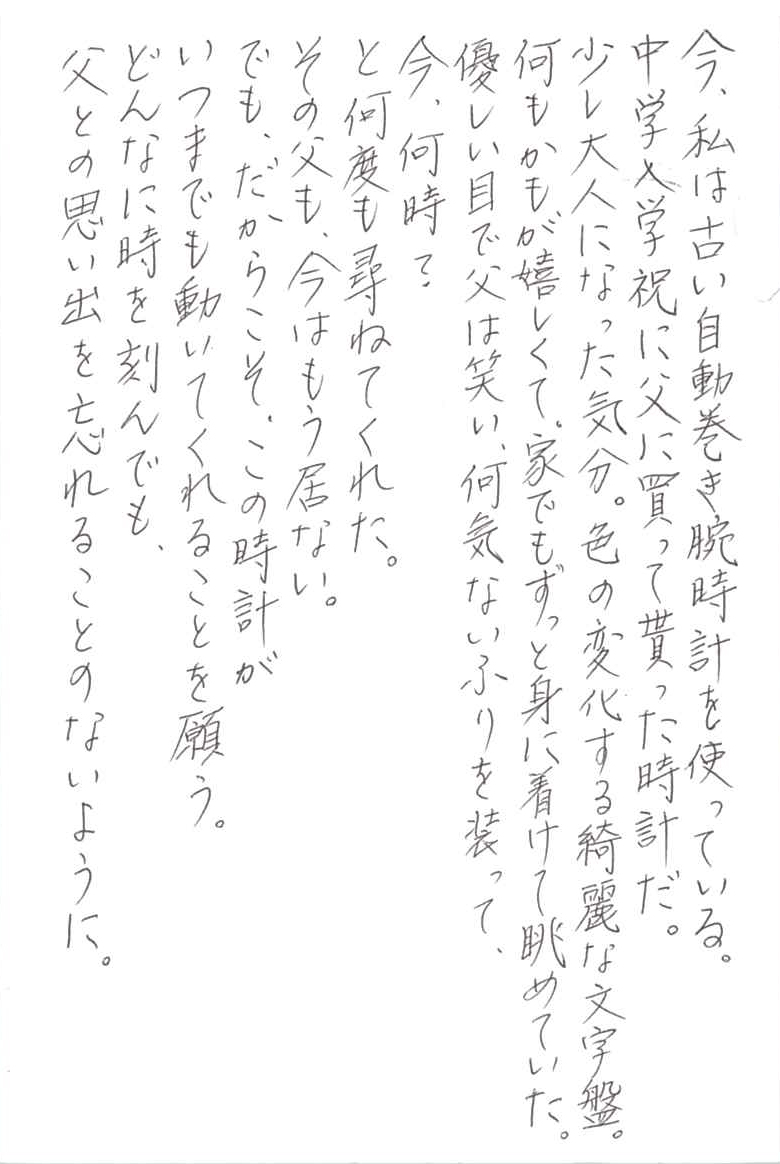 今、私は古い自動巻き腕時計を使っている。
中学入学祝に父に買って貰った時計だ。
少し大人になった気分。色の変化する綺麗な文字盤。
何もかもが嬉しくて。家でもずっと身に着けて眺めていた。
優しい目で父は笑い、何気ないふりを装って、
今、何時？
と何度も尋ねてくれた。
その父も、今はもう居ない。
でも、だからこそ。この時計が
いつまでも動いてくれることを願う。
どんなに時を刻んでも、
父との思い出を忘れることのないように。